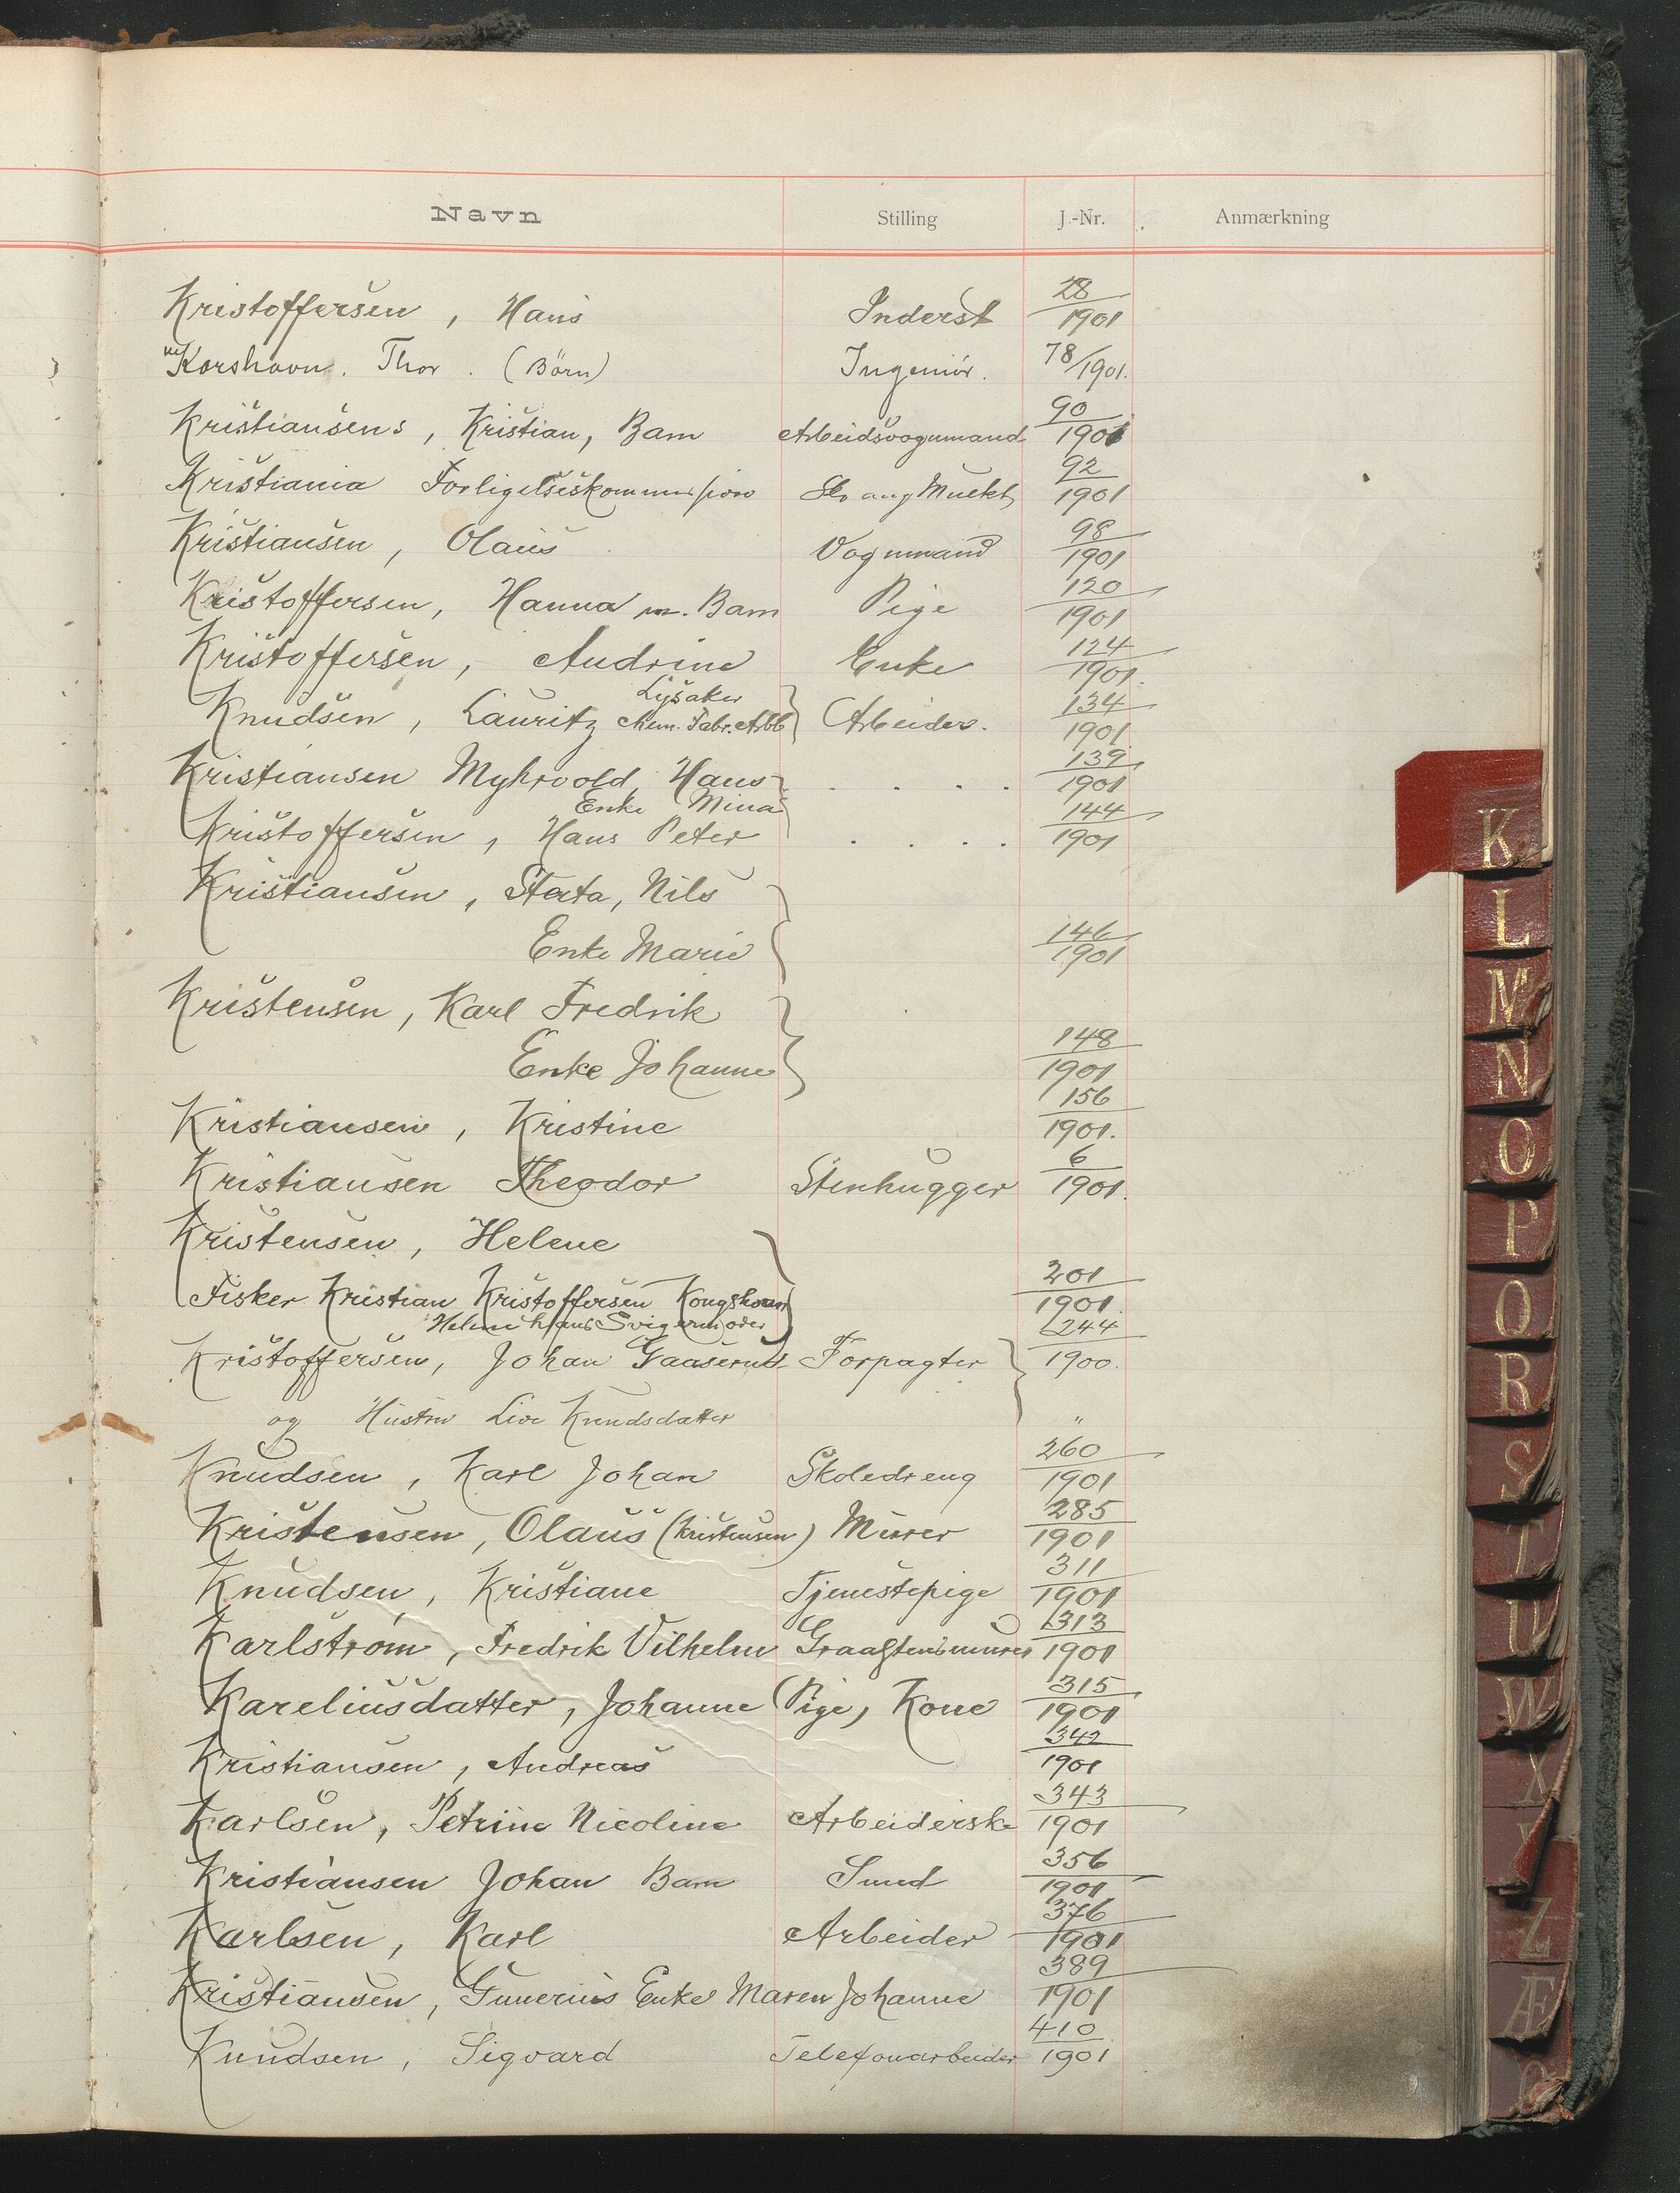 Navn Stilling J.-Nr. Anmærkning
Kristoffersen, Hans Inderst 28/1901
Korshavn. Thor. (Börn) Ingeniör. 78/1901.
Kristiansens, Kristian, Barn Arbeidsvognmand 90/1901
Kristiania Forligelseskommission 92/1901
Kristiansen, Olaus Vognmand 98/1901
Kristoffersen, Hanna m. Barn Pige 120/1901
Kristoffersen, Andrine Enke 124/1901.
Lysaker
Knudsen, Lauritz chem. Fabr. Arbb Arbeider. 134/1901
Kristiansen Myhrvold, Hans . . . . 139/1901
Enke Mina
Kristoffersen, Hans Peter . . . . 144/1901
Kristiansen, Stata, Nils
Enke Marie 146/1901
Kristensen, Karl Fredrik
Enke Johanne 148/1901
Kristiansen, Kristine 156/1901.
Kristiansen Theodor Stenhugger 6/1901.
Kristensen, Helene
Fisker Kristian Kristoffersen Kongshavn 201/1901.
Helene hans Svigermoder
Kristoffersen, Johan Gaaserud Forpagter 244/1900.
og Hustru Live Knudsdatter "
Knudsen, Karl Johan Skoledreng 260/1901
Kristensen, Olaus (Kristensen) Murer 285/1901
Knudsen, Kristiane Tjenestepige 311/1901
Karlström, Fredrik Vilhelm Graastensmurer 313/1901
Kareliusdatter, Johanne (Pige) Kone 315/1901
Kristiansen, Andreas 342/1901
Karlsen, Petrine Nicoline Arbeiderske 343/1901
Kristiansen Johan Barn Smed 356/1901
Karlsen, Karl Arbeider 376/1901
Kristiansen, Gunerius Enke Maren Johanne 389/1901
Knudsen, Sigvard Telefonarbeider 410/1901
K
L
M
N
O
P
Q
R
S
T
U
W
X
Z
Æ